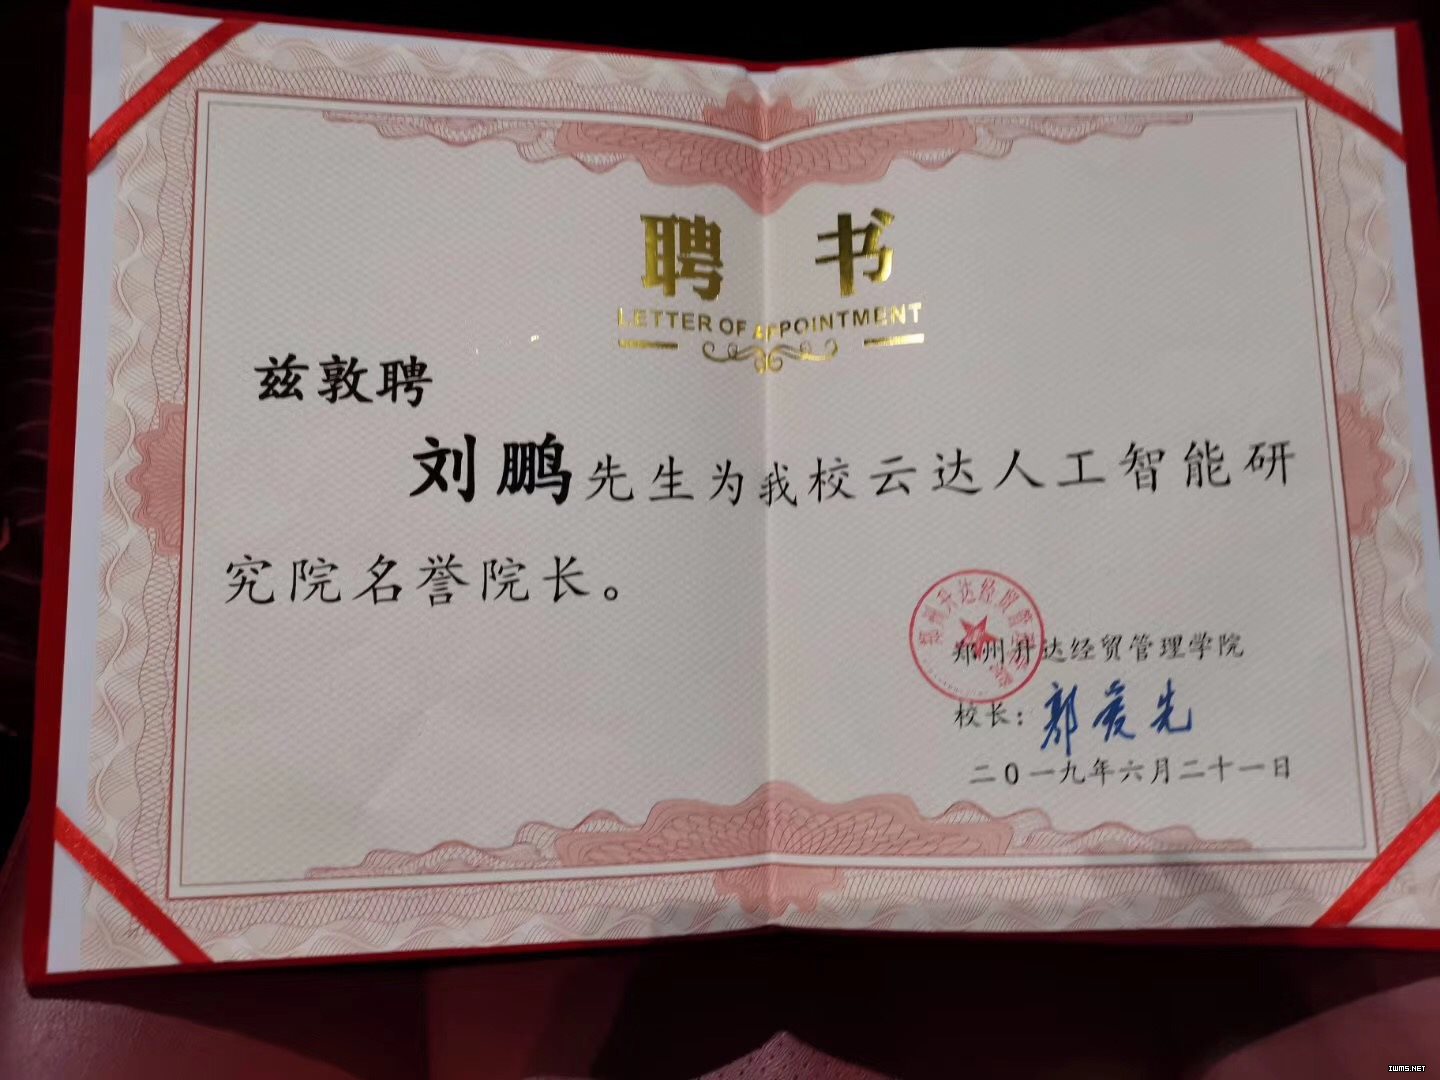 聘书
LETTER OF APPOINTMENT
兹敦聘
刘鹏先生为我校云达人工智能研
究院名誉院长。
郑州升达经贸管理学院
郑州升达经贸管理学院
校长：郭爱先
二0一九年六月二十一日
IWMS.NET